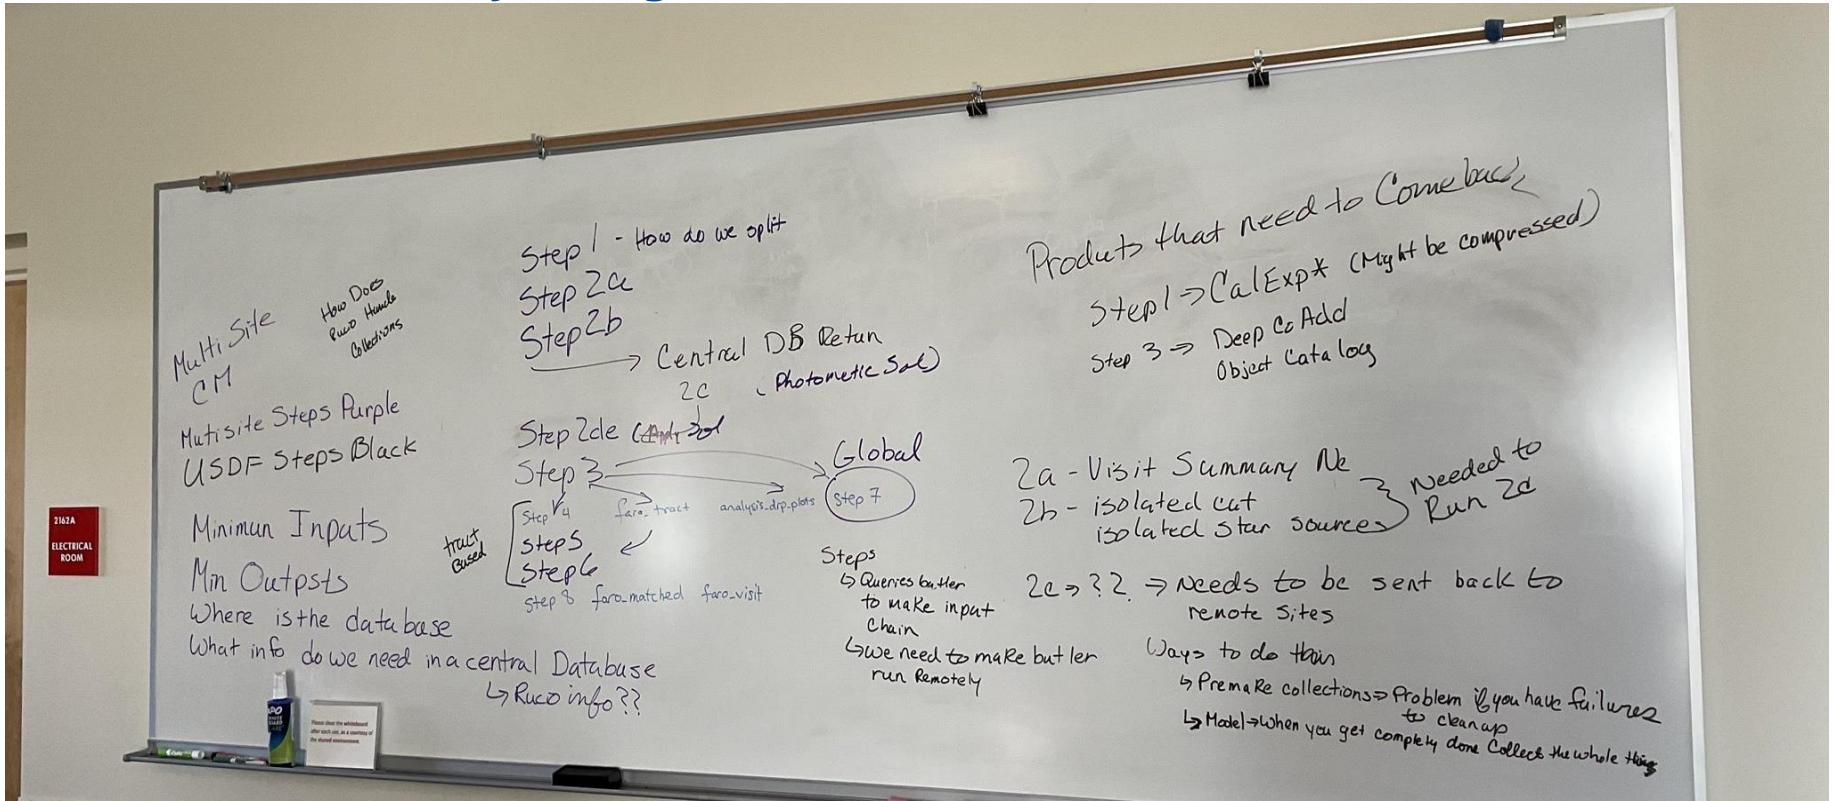 2162A
ELECTRICAL
ROOM
Multi Site
CM
How Does
Ruco Handle
Collections
Mutisite Steps Purple
USDF Steps Black
Minimun Inputs
Min Outpsts
Where is the database
What info do we need in a central Database
↳ Ruco info??
Step 1 - How do we split
Step 2a
Step 2b
→ Central DB Retun
2c (Photometic Sol)
Step 2de
Step 3
Global
Step 4
faro_tract
analysis_drp_plots
Step 7
tract
Based
Step 5
Step 6
Step 8 faro_matched faro_visit
Steps
↳ Queries butler
to make input
Chain
↳ we need to make butler
run Remotely
Produts that need to Come back
Step 1 ⇒ CalExp* (Might be compressed)
Step 3 ⇒ Deep CoAdd
Object Catalog
2a - Visit Summary
2b - isolated cat
isolated star sources
Needed to
Run 2c
2c ⇒ ?? ⇒ Needs to be sent back to
remote sites
Ways to do
↳ Premake collections ⇒ Problem if you have failures
to clean up
↳ Model → When you get complety done Collect the whole thing
Please clean the whiteboard
after each use, as a courtesy of
the shared environment.
EXPO